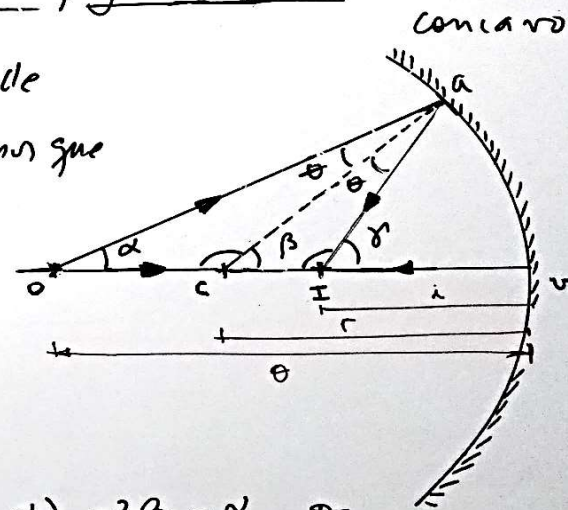 concavo
de
que
a
θ
θ
α
β
γ
O
C
I
v
i
r
θ
2β